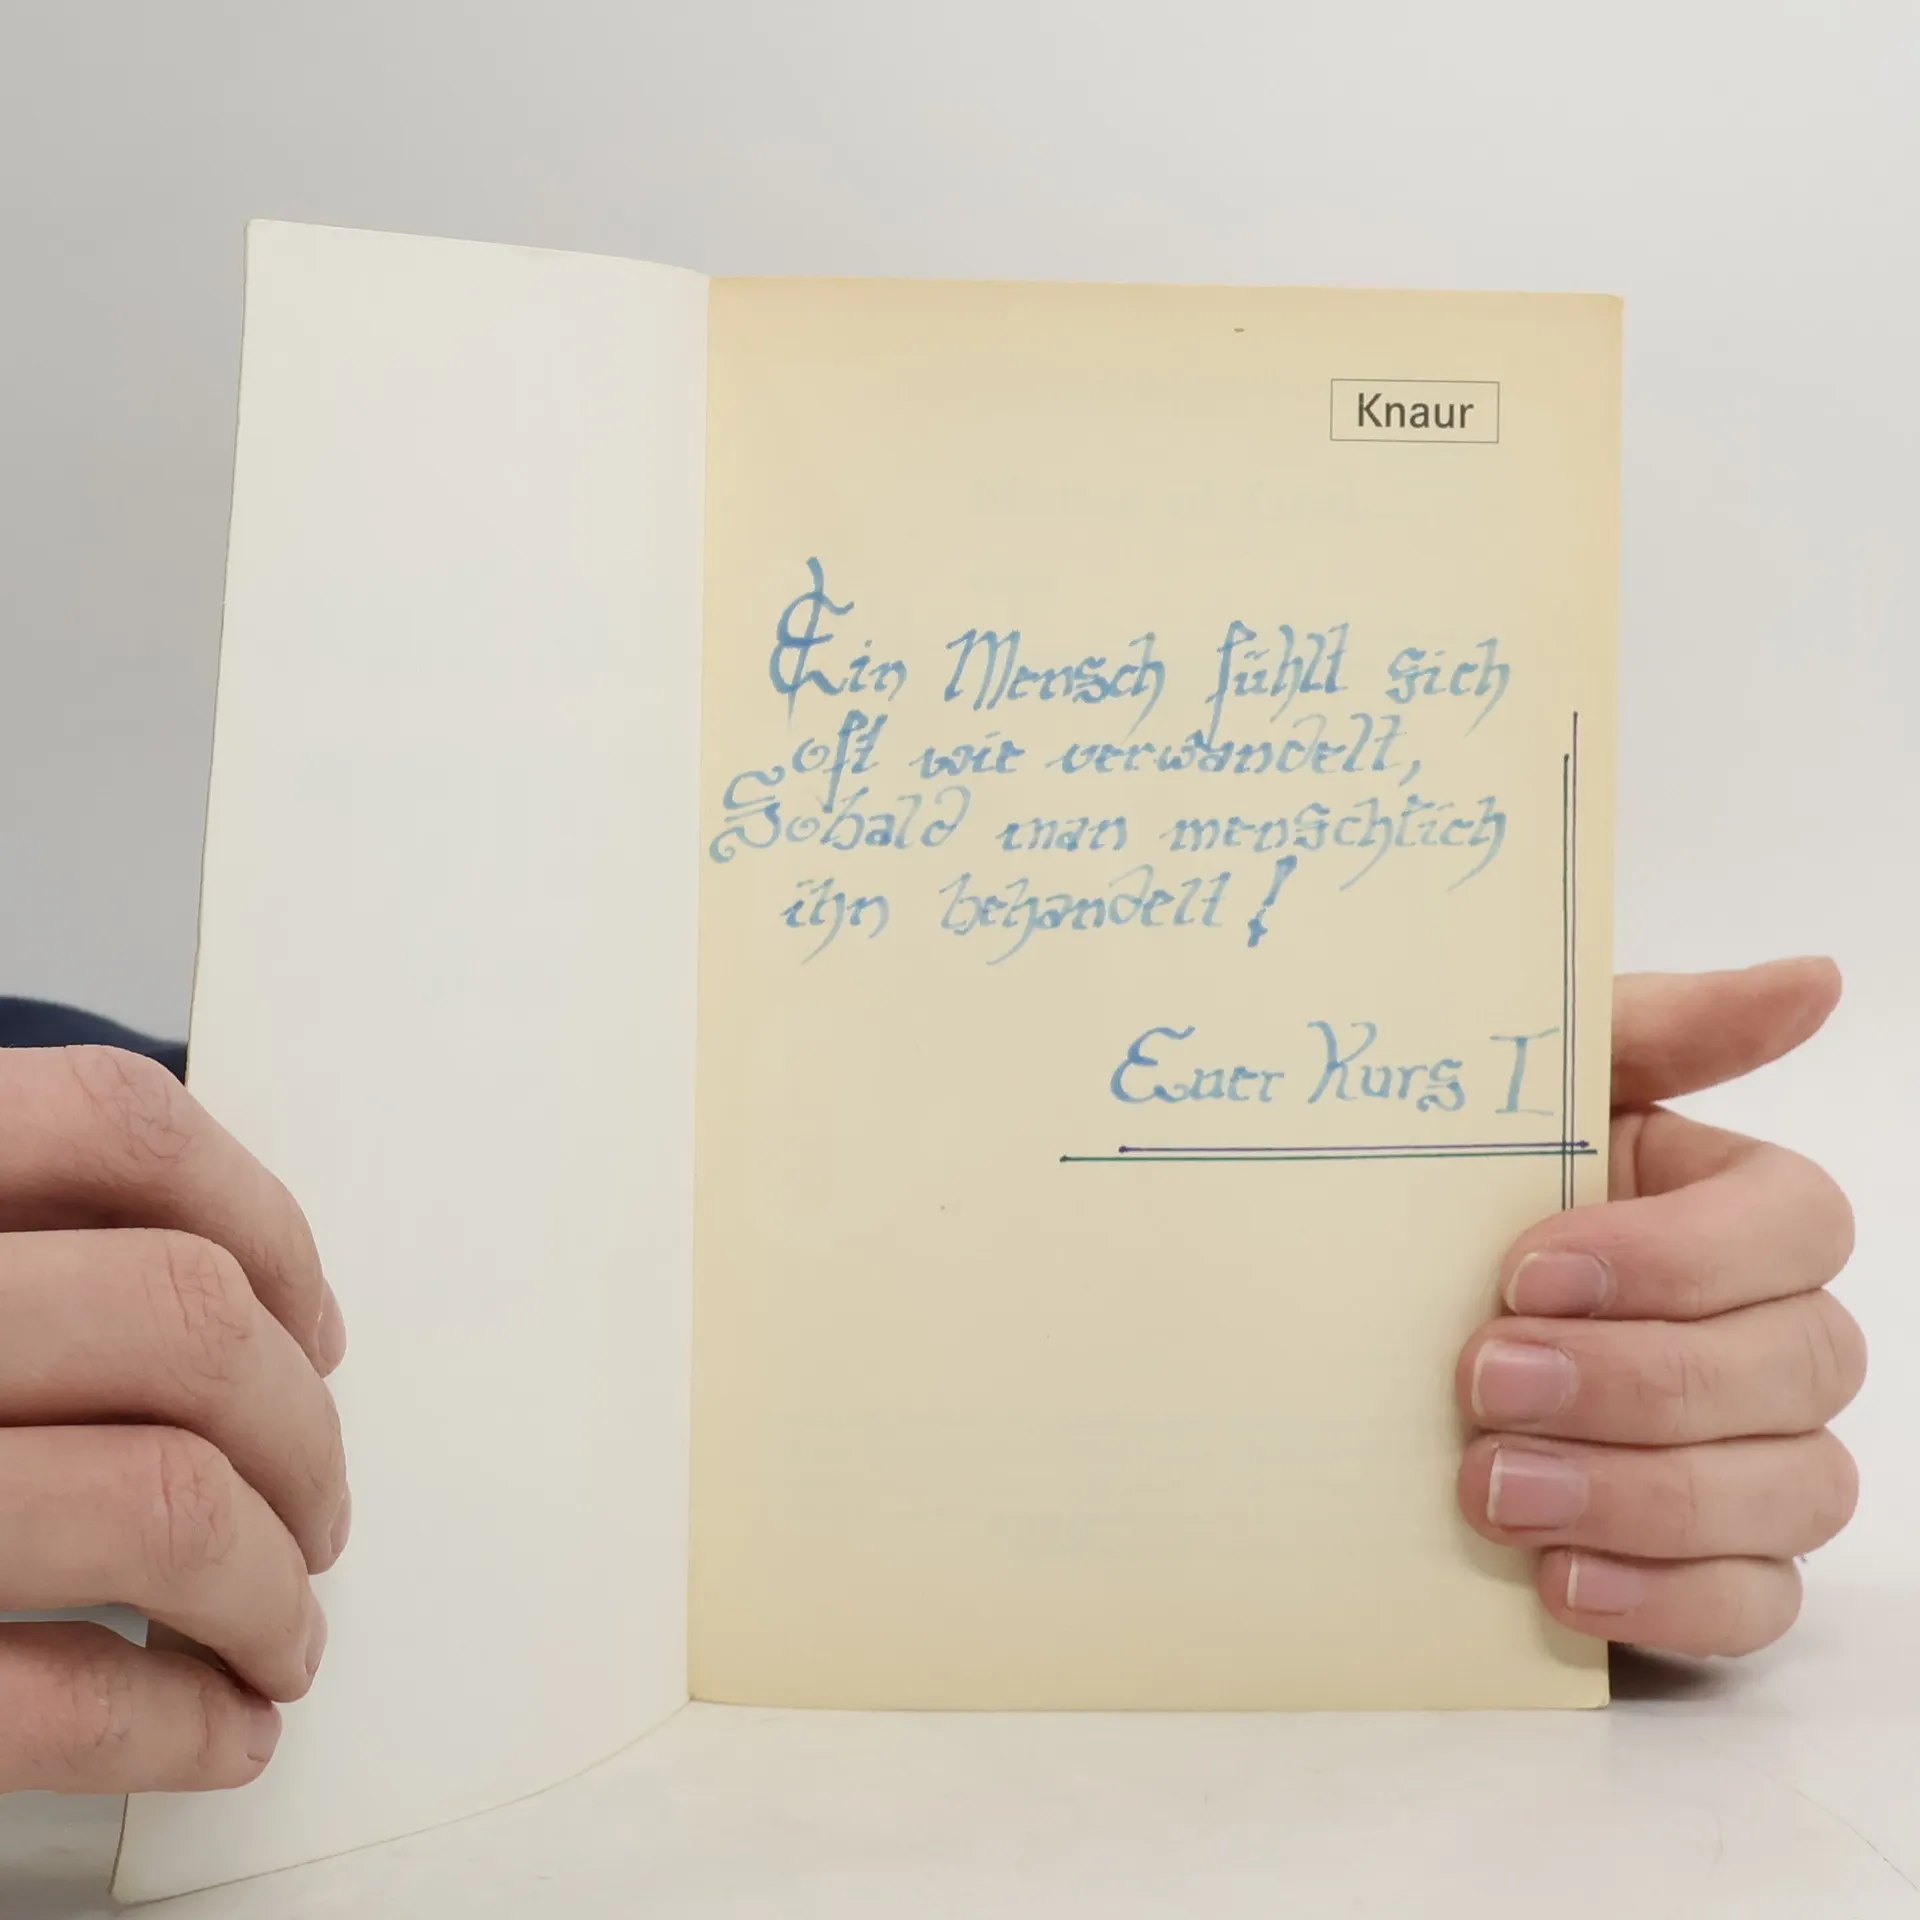 Knaur
Ein Mensch fühlt sich
oft wie verwandelt,
Sobald man menschlich
ihn behandelt!
Euer Kurs I